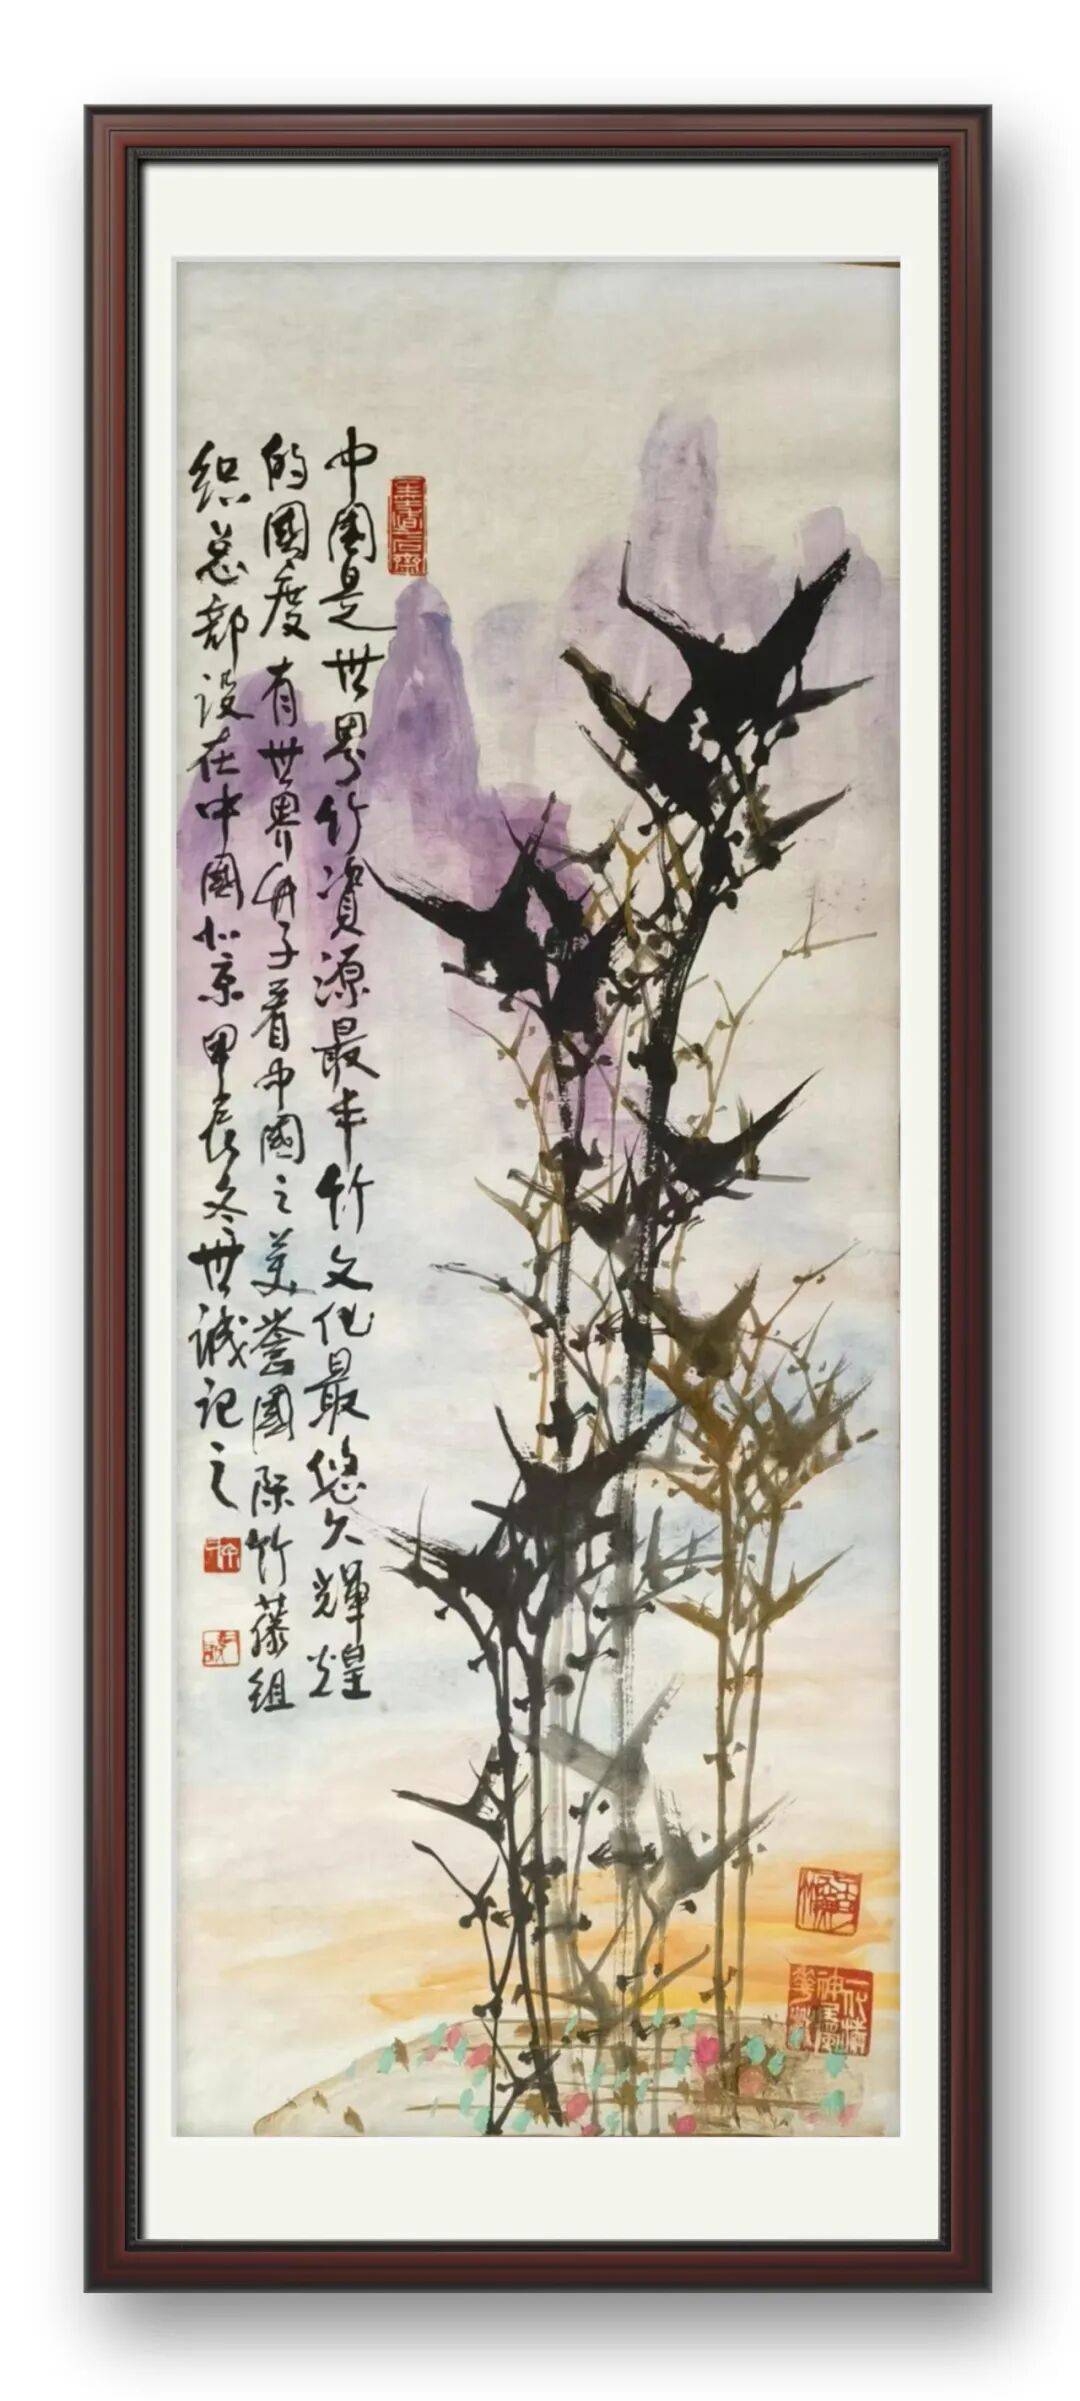 中國是世界竹資源最丰竹文化最悠久輝煌
的國度有世界竹子看中國之美誉國际竹藤组
织总部设在中國北京甲辰冬世诚记之